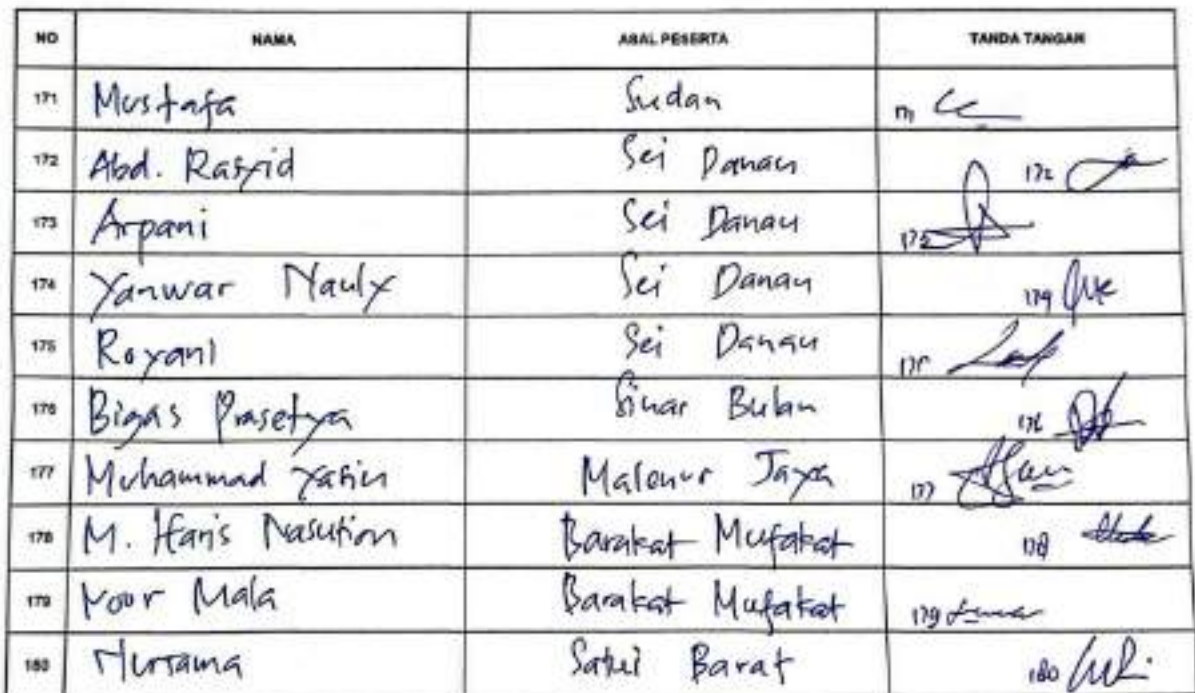 NO NAMA ASAL PESERTA TANDA TANGAN
171 Mustafa Sudan 171
172 Abd. Rasyid Sei Danau 172
173 Arpani Sei Danau 173
174 Yanwar Nauly Sei Danau 174
175 Royani Sei Danau 175
176 Bigas Prasetya Sinar Bulan 176
177 Muhammad Yasin Jaya 177
178 M. Haris Nasution Barakat Mufakat 178
179 Noor Mala Barakat Mufakat 179
180 Satui Barat 180